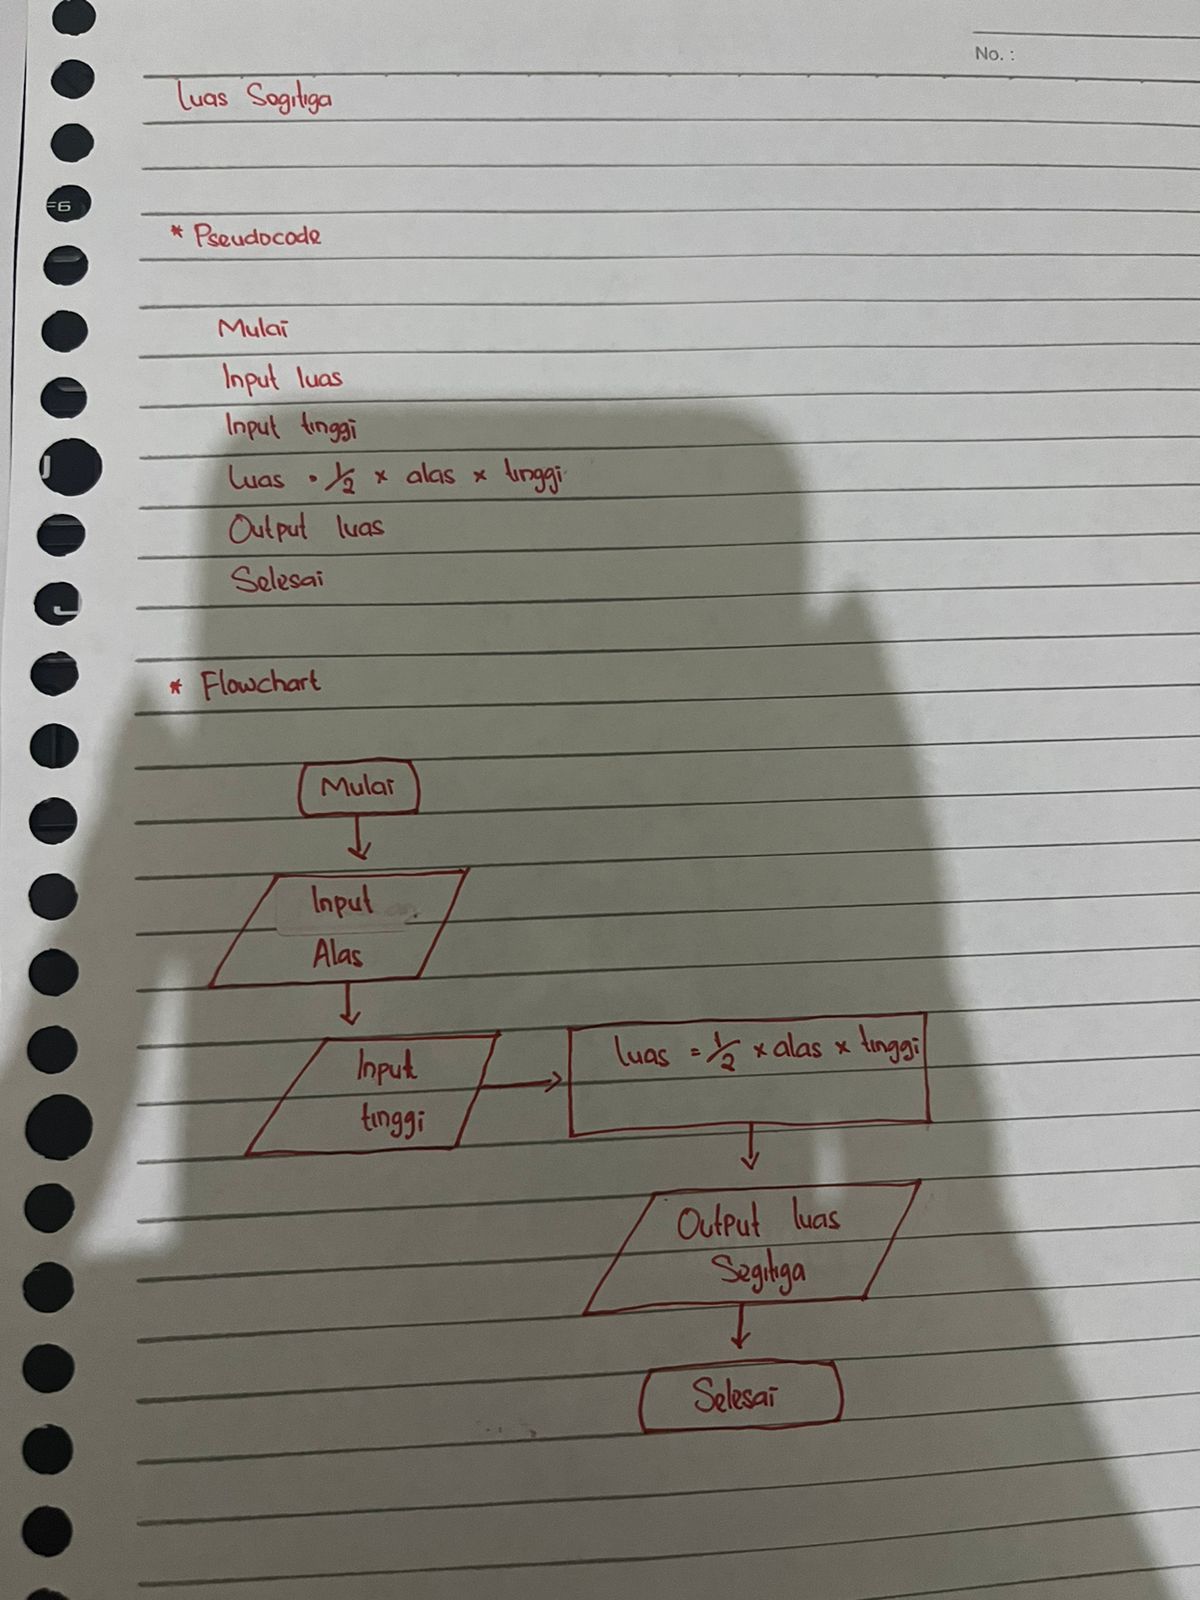 No. :
Luas Segitiga
* Pseudocode
Mulai
Input luas
Input tinggi
Luas = 1/2 × alas × tinggi
Output luas
Selesai
* Flowchart
Mulai
Input
Alas
Input
tinggi
luas = 1/2 × alas × tinggi
Output luas
Segitiga
Selesai